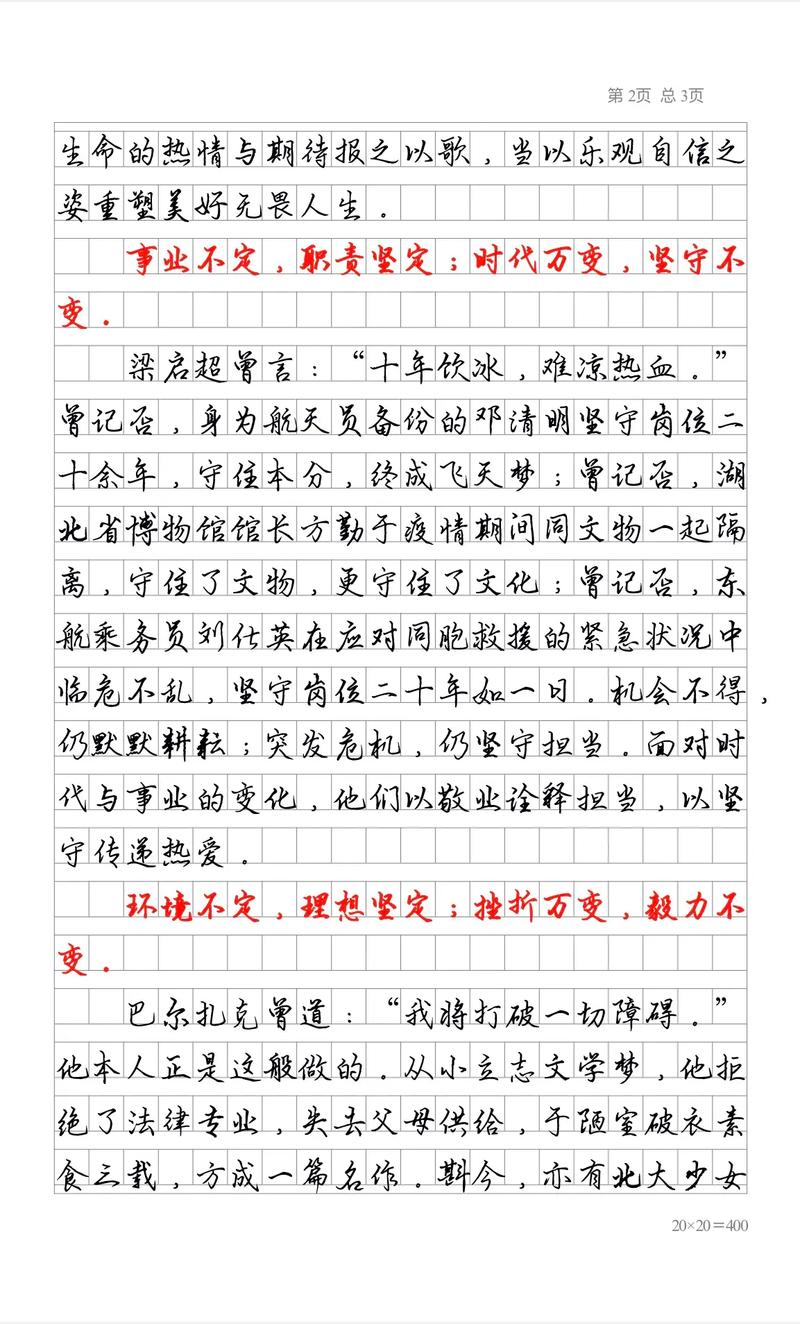 第2页 总3页
生命的热情与期待报之以歌，当以乐观自信之
姿重塑美好无畏人生。
事业不定，职责坚定；时代万变，坚守不
变．
梁启超曾言：“十年饮冰，难凉热血．”
曾记否，身为航天员备份的邓清明坚守岗位二
十余年，守住本分，终成飞天梦；曾记否，湖
北省博物馆馆长方勤于疫情期间同文物一起隔
离，守住了文物，更守住了文化；曾记否，东
航乘务员刘仕英在应对同胞救援的紧急状况中
临危不乱，坚守岗位二十年如一日．机会不得，
仍默默耕耘；突发危机，仍坚守担当．面对时
代与事业的变化，他们以敬业诠释担当，以坚
守传递热爱。
环境不定，理想坚定；挫折万变，毅力不
变．
巴尔扎克曾道：“我将打破一切障碍．”
他本人正是这般做的．从小立志文学梦，他拒
绝了法律专业，失去父母供给，于陋室破衣素
食三载，方成一篇名作．斟今，亦有北大少女
20×20＝400